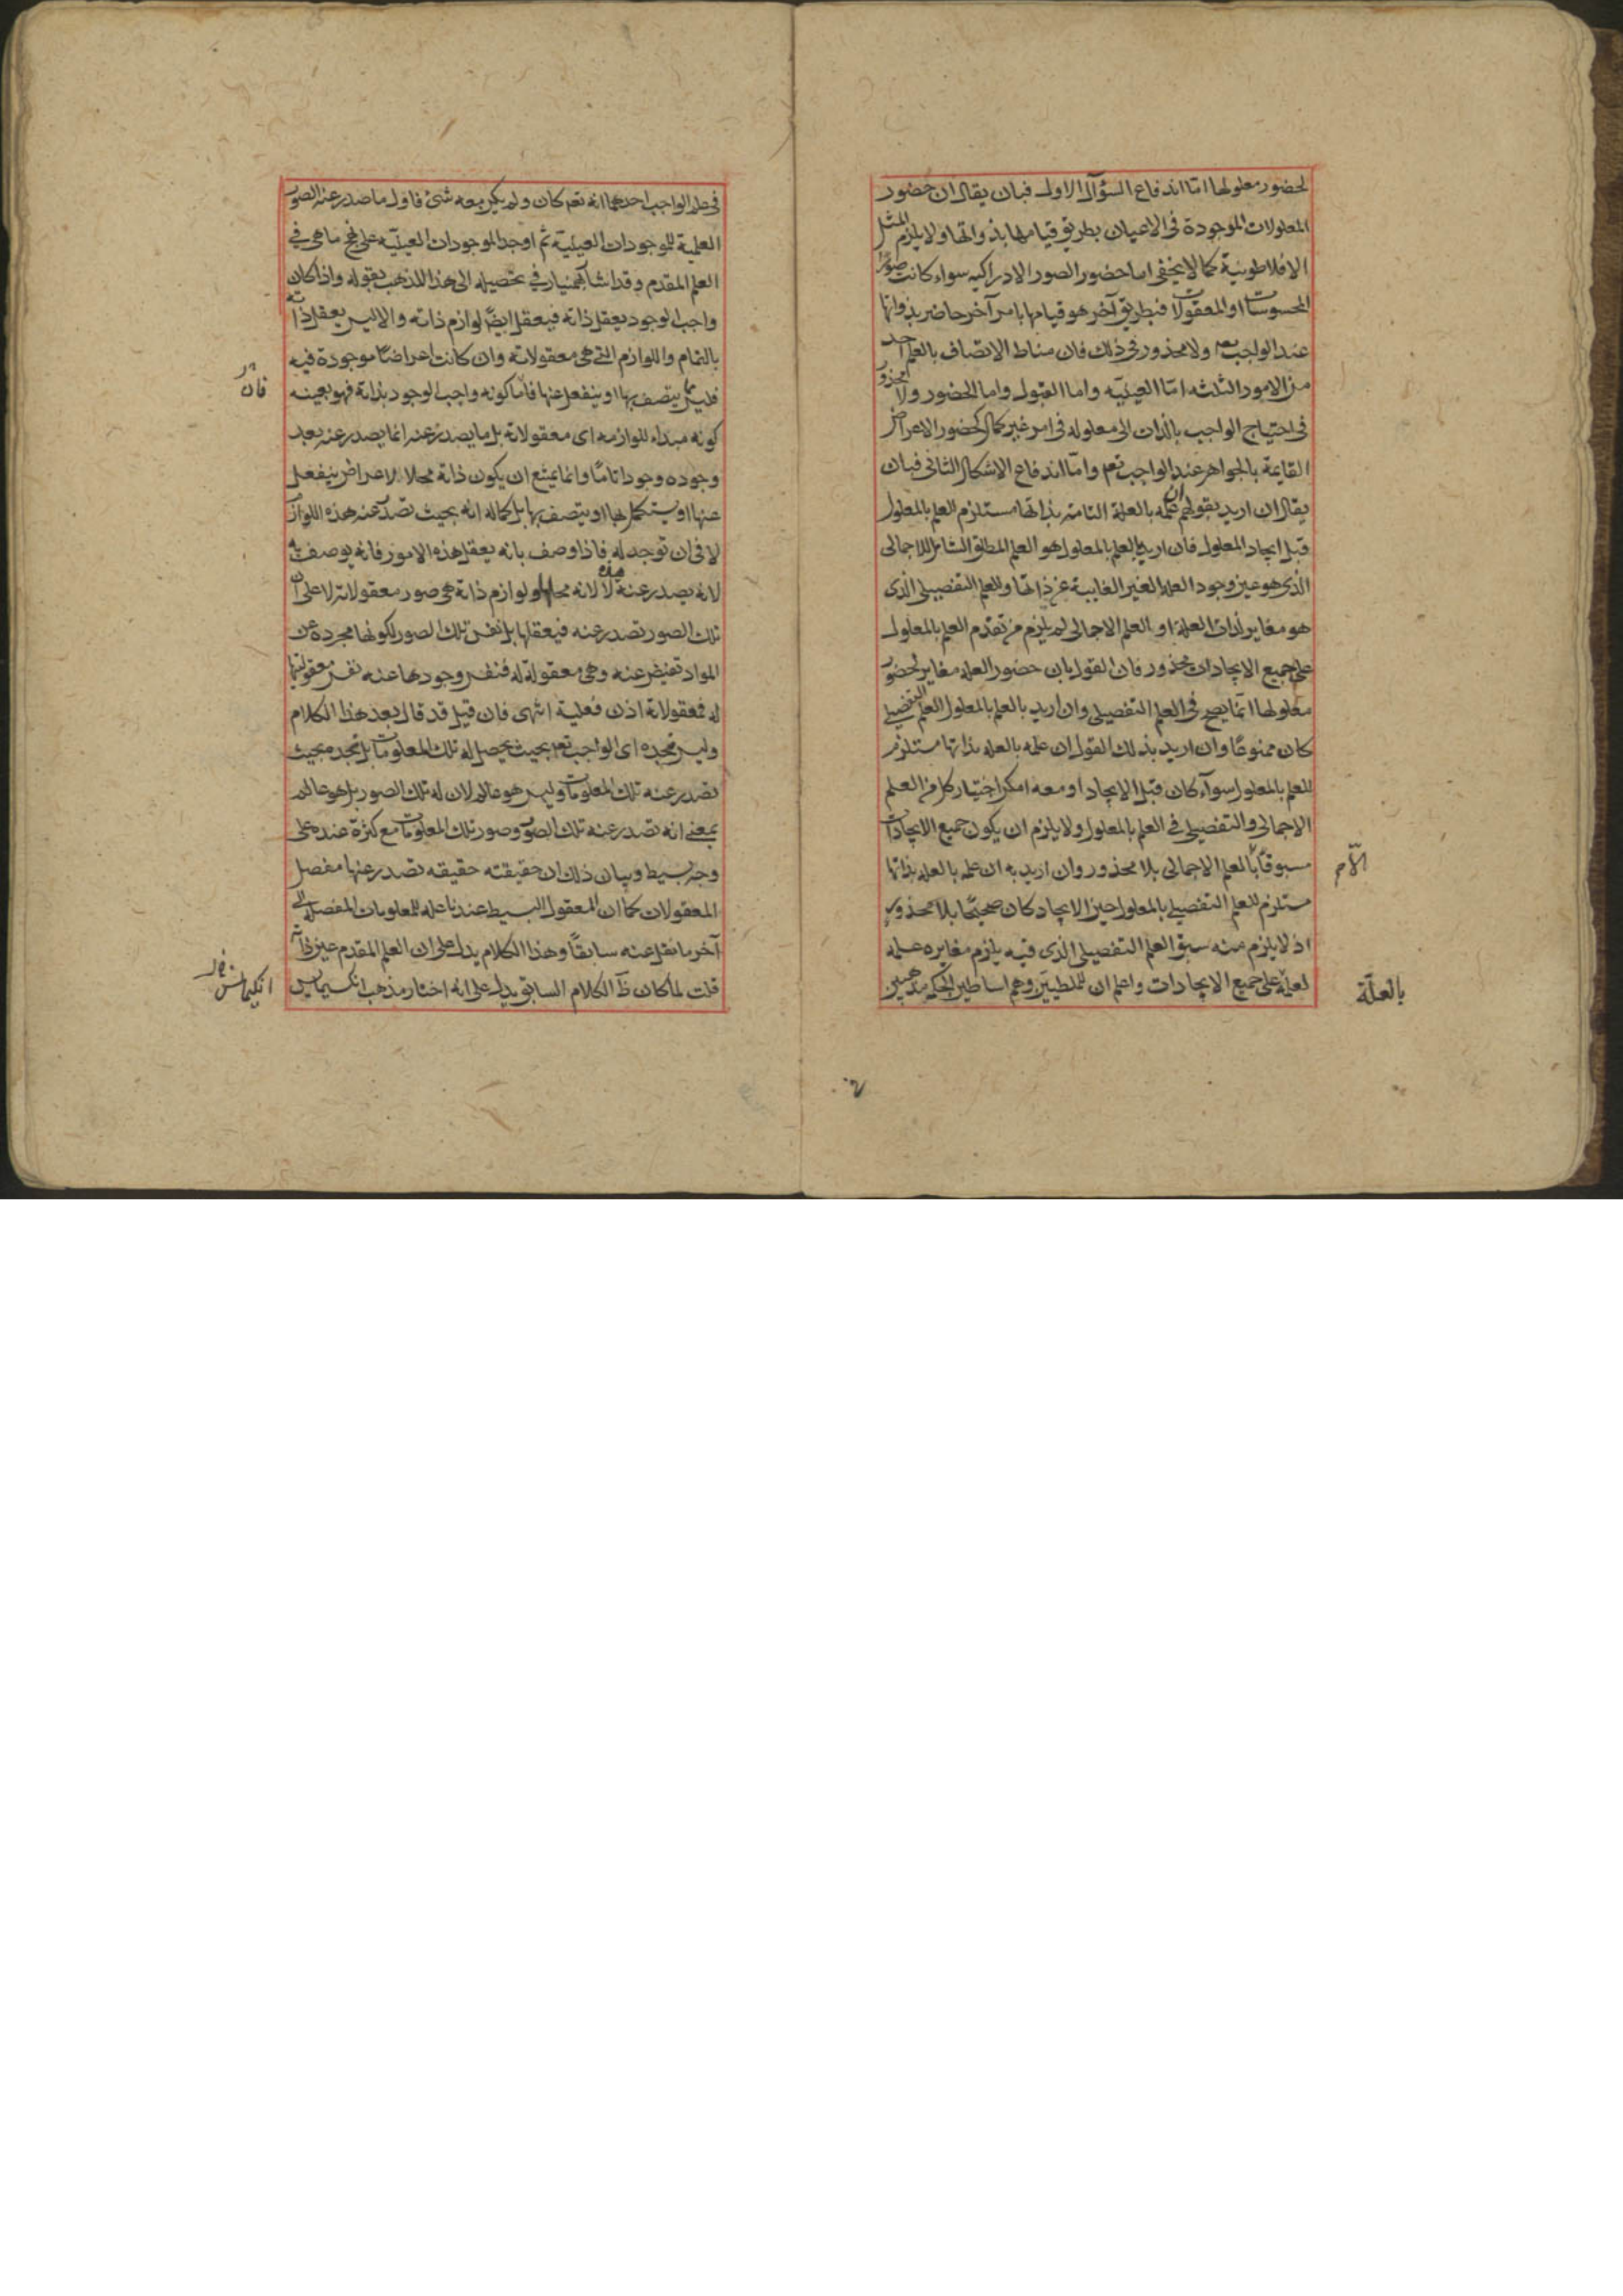 لحضور معلولها اما اندفاع السؤال الاول فبان يقال ان حضور
المعلولات الموجودة فى الاعيان بطريق قيامها بذواتها ولا يلزم المثل
الافلاطونية كما لا يخفى اما حضور الصور الادراكيه سواء كانت صور
المحسوسات او المعقولات فبطريق آخر هو قيامها بامر آخر حاضر بذواتها
عند الواجب تعم ولا محذور فى ذلك فان مناط الاتصاف بالعلم احد
من الامور الثلثه امّا العينيّه واما القبول واما الحضور ولا محذور
فى احتياج الواجب بالذات الى معلوله فى امر غير كمال كحضور الاعراض
القايمة بالجواهر عند الواجب تعم وامّا اندفاع الاشكال الثانى فبان
يقال ان اريد بقولهم ان علمه بالعلة التامه بذاتها مستلزم للعلم بالمعلول
قبل ايجاد المعلول فان اريد بالعلم بالمعلول هو العلم المطلق الشامل للاجمالى
الذى هو عين وجود العلة الغير الغايبة عن ذاتها وللعلم التفصيلى الذى
هو مغاير لذات العلة او العلم الاجمالى لم يلزم من تقدم العلم بالمعلول
على جميع الايجادات محذور فان القول بان حضور العلة مغاير لحضور
معلولها انما يصح فى العلم التفصيلى وان اريد بالعلم بالمعلول العلم التفصيلى
كان ممنوعًا وان اريد بذلك القول ان علمه بالعله بذاتها مستلزم
للعلم بالمعلول سوآء كان قبل الايجاد او معه امكن اختيار كل من العلم
الاجمالى والتفصيلى فى العلم بالمعلول ولا يلزم ان يكون جميع الايجادات
مسبوقاً بالعلم الاجمالى بلا محذور وان اريد به ان علمه بالعله بذاتها
مستلزم للعلم التفصيلى بالمعلول حين الايجاد كان صحيحًا بلا محذور
اذ لا يلزم منه سبق العلم التفصيلى الذى فيه يلزم مغايره علمه
لعلمه على جميع الايجادات واعلم ان للملطيين وهم اساطين الحكمه مذهبين
بالعلّة
فى علم الواجب احدهما انه تعم كان ولم يكن معه شئ فاول ما صدر عنه الصور
العلمية للموجودات العينية ثم اوجد الموجودات العينيّه على نهج ما هى فى
العلم المقدم وقد اشار بهمنيار فى تحصيله الى هذا المذهب بقوله واذا كان
واجب الوجود يعقل ذاته فيعقل ايضًا لوازم ذاته والا ليس يعقل ذاته
بالتمام واللوازم التى هى معقولاته وان كانت اعراضًا موجودة فيه
فليس مما يتصف بها او ينفعل عنها فاما كونه واجب الوجود بذاته فهو بعينه
كونه مبداء للوازمه اى معقولاته بل ما يصدر عنه انما يصدر عنه بعد
وجوده وجودا تامًا وانما يمتنع ان يكون ذاته محلا لاعراض ينفعل
عنها او يستكمل بها او يتصف بها بل كماله انه بحيث تصدر عنه هذه اللوازم
لا فى ان توجد له فاذا وصف بانه يعقل هذه الامور فانه يوصف به
لانه يصدر عنه لا لانه محلها ولوازم ذاته هى صور معقولاته لا على ان
تلك الصور تصدر عنه فيعقلها بل نفس تلك الصور لكونها مجردة عن
المواد تفيض عنه وهى معقولة له فنفس وجودها عنه نفس معقوليتها
له فمعقولاته اذن فعلية انتهى فان قيل قد قال بعد هذا الكلام
وليس مجده اى الواجب تعم بحيث يحصل له تلك المعلومات بل مجده بحيث
تصدر عنه تلك المعلومات وليس هو عالم لان له تلك الصور بل هو عالم
بمعنى انه تصدر عنه تلك الصور وصور تلك المعلومات مع كثرة عنده على
وجه بسيط وبيان ذلك ان حقيقته حقيقه تصدر عنها مفصل
المعقولات كما ان المعقول البسيط عندنا علة للمعلومات المفصلة الى
آخر ما نقل عنه سابقًا وهذا الكلام يدل على ان العلم المقدم عين ذاته
قلت لما كان الكلام السابق يدل على انه اختار مذهب انكسيمايس
فان